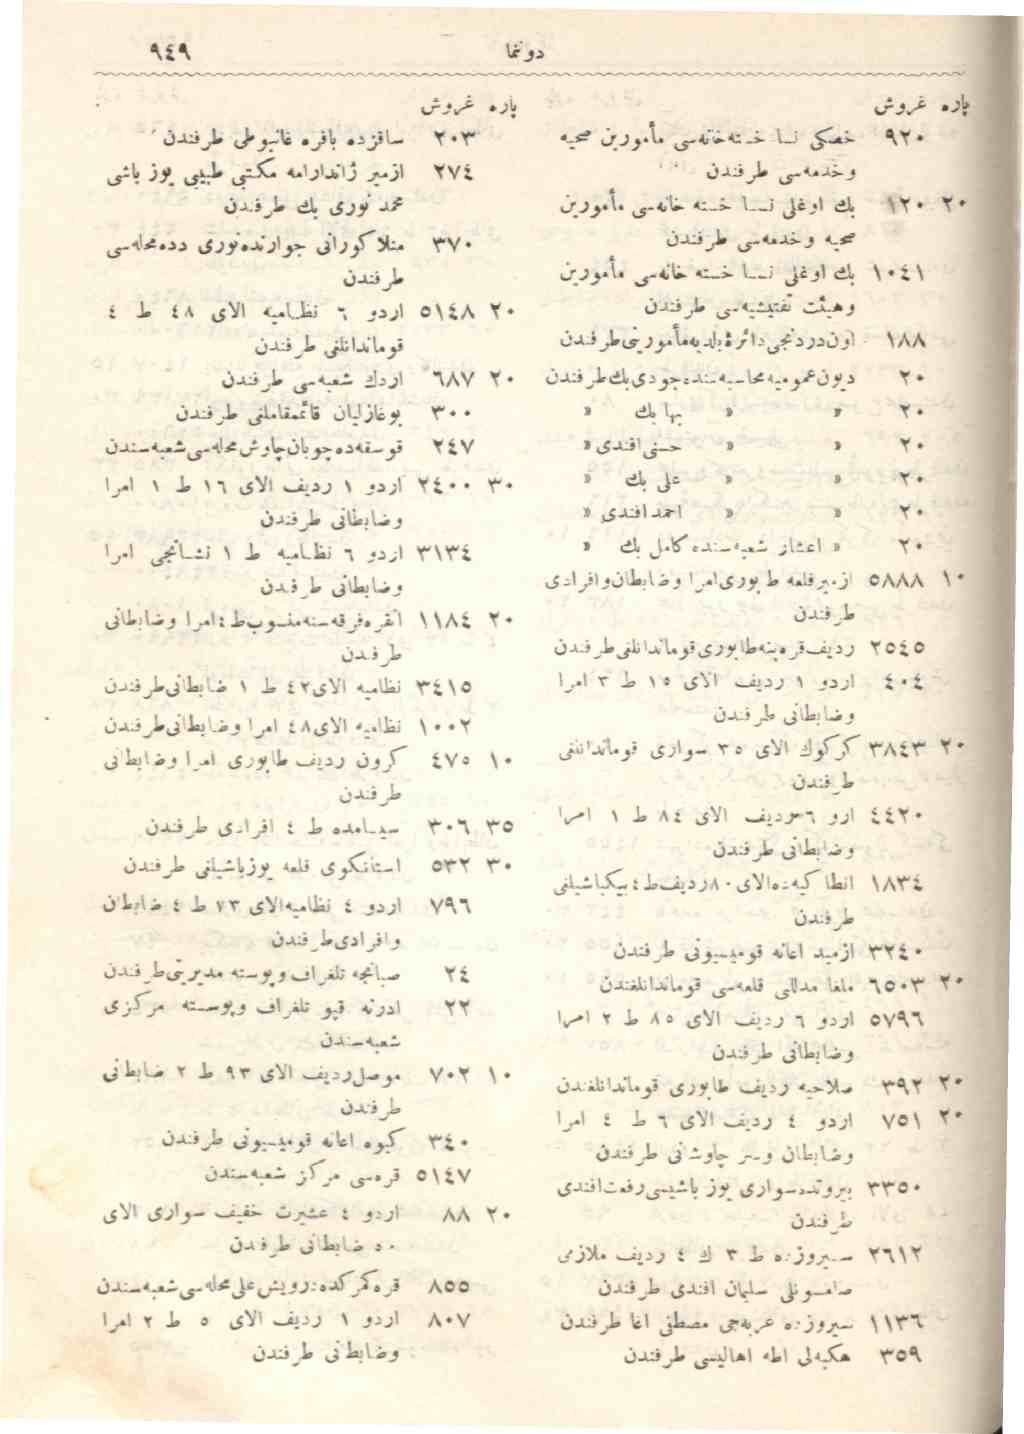 دونما ٩٤٩
پاره غروش
٩٢٠ خصكی نسا خسته‌خانه‌سی مأمورین صحیه
وخدمه‌سی طرفندن
٢٠ ١٢٠ بك اوغلی نسا خسته خانه‌سی مأمورین
صحیه وخدمه‌سی طرفندن
١٠٤١ بك اوغلی نسا خسته خانه‌سی مأمورین
وهیئت تفتیشیه‌سی طرفندن
١٨٨ اون‌دردنجی دائرۀ بلدیه مأمورینی طرفندن
٢٠ دیون عمومیه محاسبه‌سنده جودی بك طرفندن
٢٠ » » بها بك »
٢٠ » » حسنی افندی »
٢٠ » » علی بك »
٢٠ » » احمد افندی »
٢٠ » اعشار شعبه‌سنده كامل بك »
١٠ ٥٨٨٨ ازمیر قلعه طابوری امرا وضابطان وافرادی
طرفندن
٢٥٤٥ ردیف قره‌پیكار طابوری قوماندانلغی طرفندن
٤٠٤ اردو ١ ردیف الای ١٥ ط ٣ امرا
وضابطانی طرفندن
٢٠ ٣٨٤٣ كركوك الای ٣٥ سواری قوماندانلغی
طرفندن
٤٤٢٠ ارو ٦ ردیف الای ٨٤ ط ١ امرا
وضابطانی طرفندن
١٨٣٤ انطاكیه‌ده الای ٨٠ ردیف ط ٤ بیكباشیلغی
طرفندن
٣٢٤٠ ازمید اعانه قومیسیونی طرفندن
٢٠ ٦٥٠٣ ملغا مدللی قلعه‌سی قوماندانلغندن
٥٧٩٦ اردو ٦ ردیف الای ٨٥ ط ٢ امرا
وضابطانی طرفندن
٢٠ ٣٩٢ صلاحیه ردیف طابوری قوماندانلغندن
٢٠ ٧٥١ اردو ٤ ردیف الای ٦ ط ٤ امرا
وضابطان وسر چاوشانی طرفندن
٣٣٥٠ بیروتده سواری یوز باشیسی رفعت افندی
طرفندن
٢٦١٢ سیروزده ط ٣ ك ٤ ردیف ملازمی
صامسونلی سلیمان افندی طرفندن
١١٣٦ سیروزده عربه‌جی مصطفی اغا طرفندن
٣٥٩ هكبه‌لی اطه اهالیسی طرفندن
پاره غروش
٢٠٣ ساقزده باقره طرفندن
٢٧٤ ازمیر ژاندارامه مكتبی طبیبی یوز باشی
محمد نوری بك طرفندن
٣٧٠ منلا كورانی جوارنده نوری دده محله‌سی
طرفندن
٢٠ ٥١٤٨ اردو ٦ نظامیه الای ٤٨ ط ٤
قوماندانلغی طرفندن
٢٠ ٦٨٧ اردك شعبه‌سی طرفندن
٣٠٠ بوغازلیان قائممقاملغی طرفندن
٢٤٧ قوسقه‌ده چوبان چاوش محله‌سی شعبه‌سندن
٣٠ ٢٤٠٠ اردو ١ ردیف الای ١٦ ط ١ امرا
وضابطانی طرفندن
٣١٣٤ اردو ٦ نظامیه ط ١ نشانجی امرا
وضابطانی طرفندن
٢٠ ١١٨٤ انقره فرقه‌سنه منسوب ط ٤ امرا وضابطانی
طرفندن
٣٤١٥ نظامیه الای ٤٢ ط ١ ضابطانی طرفندن
١٠٠٢ نظامیه الای ٤٨ امرا وضابطانی طرفندن
١٠ ٤٧٥ كرون ردیف طابوری امرا وضابطانی
طرفندن
٣٥ ٣٠٦ سیسامده ط ٤ افرادی طرفندن
٣٠ ٥٣٢ استانكوی قلعه یوزباشیلغی طرفندن
٧٩٦ اردو ٤ نظامیه الای ٧٣ ط ٤ ضابطان
وافرادی طرفندن
٢٤ صبانجه تلغراف وپوسته مدیریتی طرفندن
٢٢ ادرنه قپو تلغراف وپوسته مركزی
شعبه‌سندن
١٠ ٧٠٢ موصل ردیف الای ٩٣ ط ٢ ضابطانی
طرفندن
٣٤٠ كبوه اعانه قومیسیونی طرفندن
٥١٤٧ قره‌سی مركز شعبه‌سندن
٢٠ ٨٨ اردو ٤ عشیرت خفیف سواری الای
٥٠ ضابطانی طرفندن
٨٥٥ قره كمركده درویش علی محله‌سی شعبه‌سندن
٨٠٧ اردو ١ ردیف الای ٥ ط ٢ امرا
وضابطانی طرفندن